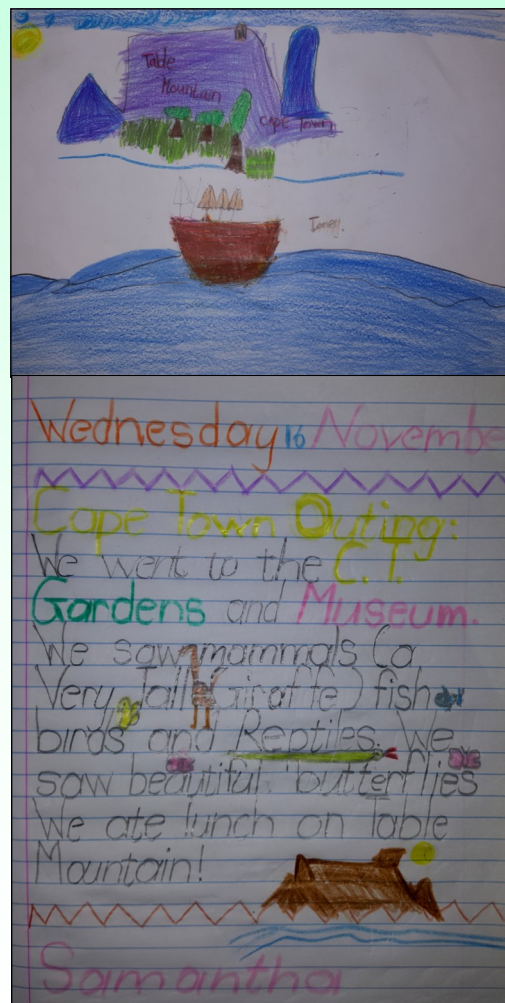 Table
Mountain
Cape Town
Wednesday 16 Novembe
Cape Town Outing:
We went to the C.T.
Gardens and Museum.
We saw mammals (a
Very Tall Giraffe) fish
birds and Reptiles. We
saw beautiful butterflies
We ate lunch on Table
Mountain!
Samantha